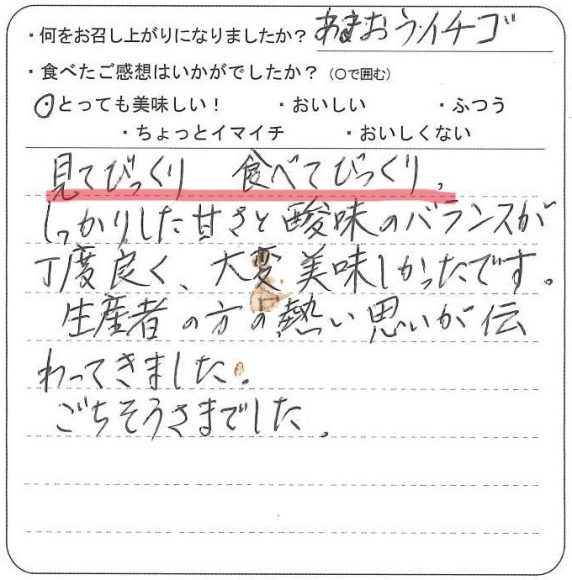 ・何をお召し上がりになりましたか? あまおうイチゴ
・食べたご感想はいかがでしたか?(〇で囲む)
・とっても美味しい! ・おいしい ・ふつう
・ちょっとイマイチ ・おいしくない
見てびっくり 食べてびっくり。
しっかりした甘さと酸味のバランスが
丁度良く、大変美味しかったです。
生産者の方の熱い思いが伝
わってきました。
ごちそうさまでした。